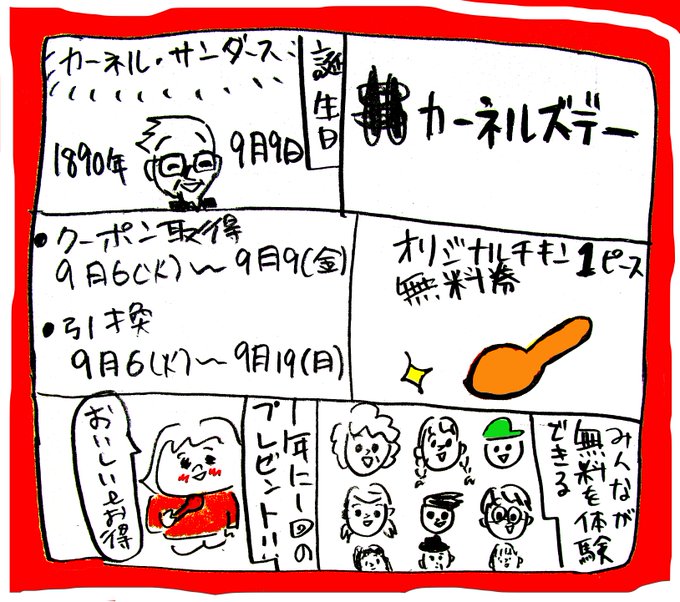 カーネルズデー
カーネル・サンダース
誕生日
1890年
9月9日
オリジナルチキン1ピース
無料券
・クーポン取得
9月6(火)〜9月9(金)
・引き換
9月6(火)〜9月19(月)
みんなが
無料を体験
できる
1年に1回の
プレゼント!!
おいしいとお得